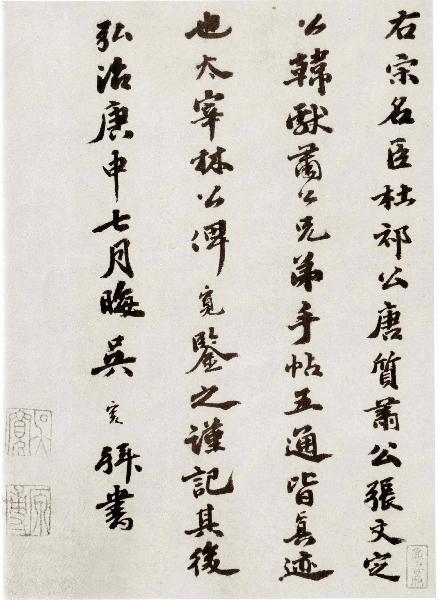 右宗名臣杜祁公唐質肅公張文定
公韓獻肅公兄弟手帖五通皆真迹
也太宰林公俾寬鑒之謹記其後
弘治庚申七月晦吳寬拜書
吳寬
原博